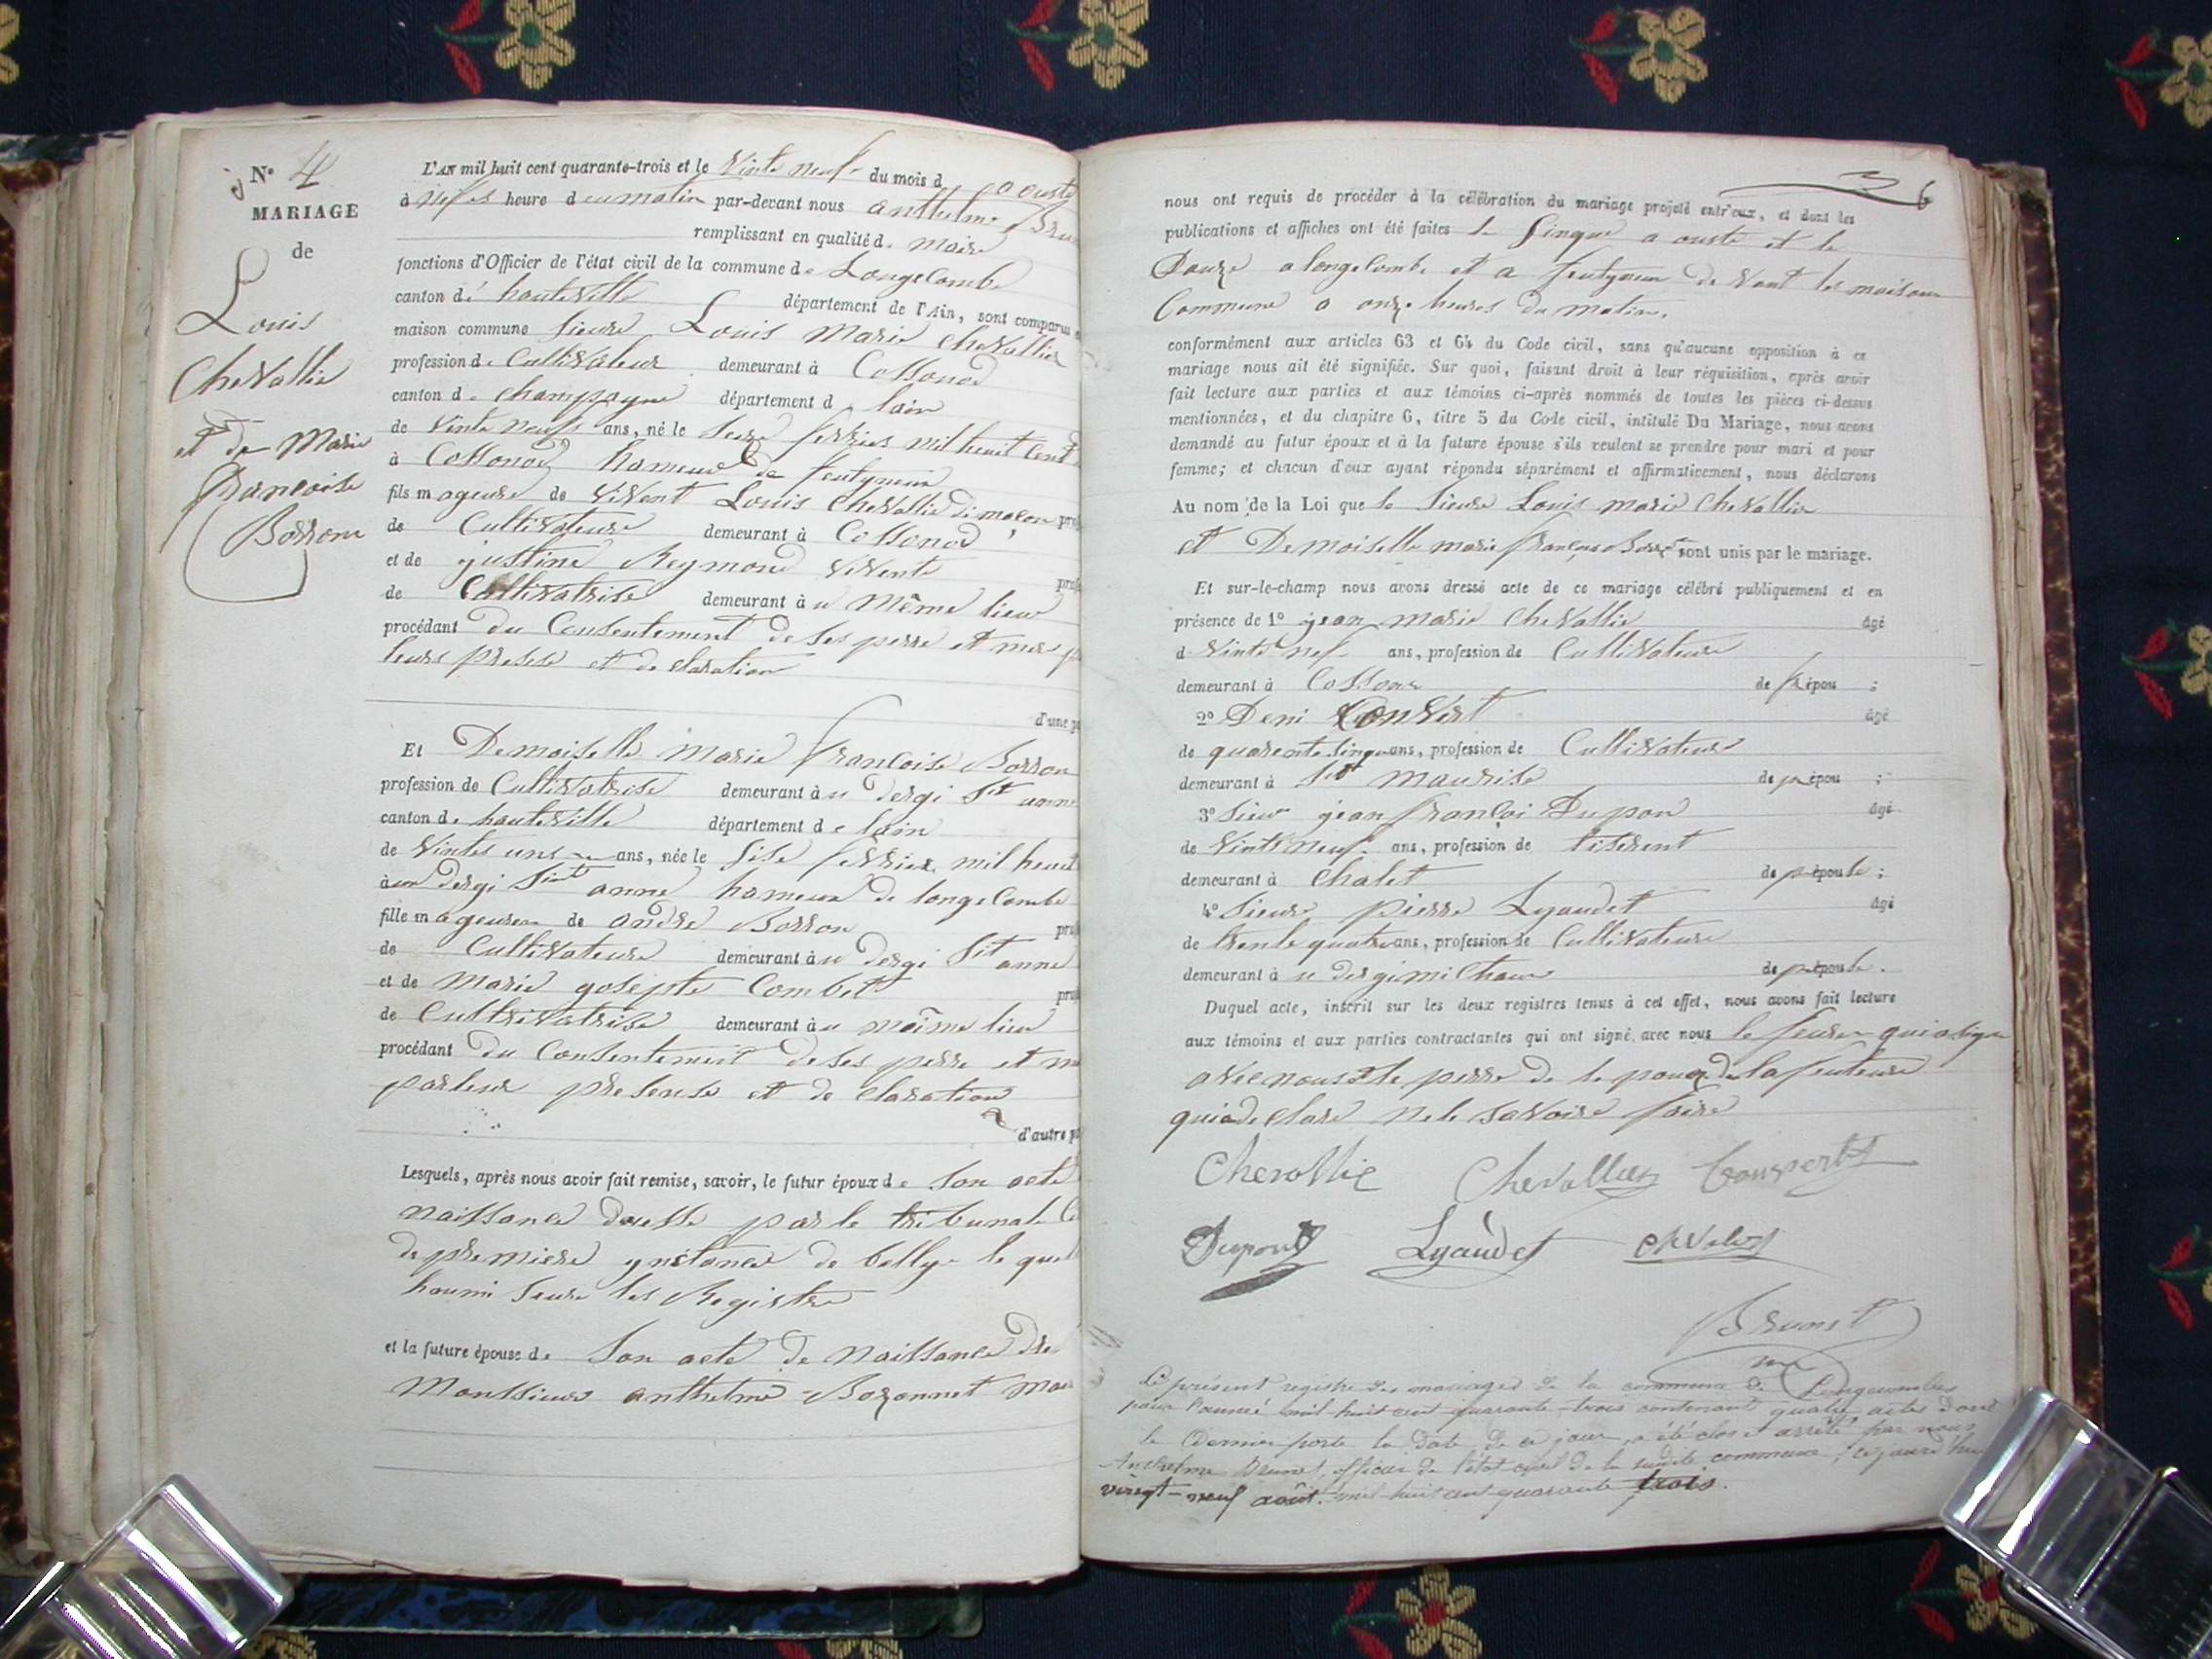 N° 4
MARIAGE
de
Louis
Chevallie
et de Marie
francoise
Borron
L'AN mil huit cent quarante-trois et le Vinte neuf du mois d aouste
à heure du matin par-devant nous anthelme Bru
remplissant en qualité de maire
fonctions d'Officier de l'état civil de la commune de Longecombe
canton de hauteville département de l'Ain, sont comparus
maison commune Sieure Louis Marie Chevallier
profession de Cultivateur demeurant à Cossonod
canton de Champagne département de lain
de Vinte neuf ans, né le Seize fevrier mil heuit cent
à Cossonod hameux de
fils mageure de Vivent Louis Chevallie di maçon
de Cultivateure demeurant à Cossonod
et de gustine Reymond Vivente
de Cultivatrise demeurant à u même lieu
procédant du Consentement de ses perre et mer
leurs presese et de claration
d'une
Et Demoiselle Marie francoise Borron
profession de Cultivatrise demeurant à u dergi St anne
canton de hauteville département de lain
de Vintes uns ans, née le Sise fevrier mil heuit
àu dergi Sint anne hameux de longecombe
fille mageure de andre Borron
de Cultivateure demeurant à u dergi Sit anne
et de Marie gosepte Combet
de Cultrivatrise demeurant à u moime lieu
procédant du Consentement de ses perre et m
parleur presense et de claration
d'autre
Lesquels, après nous avoir fait remise, savoir, le futur époux de Son acte
naissance par le tribunale
de premiere ynstance de belly le quel
Seure les Registre
et la future épouse de Son acte de naissance
Monssieur anthelme Bozonnet
6
nous ont requis de procéder à la célébration du mariage projeté entr'eux, et dont les
publications et affiches ont été faites le Sinque aouste et le
Douze a longecombe et a de vant les maison
Commune a onze heures du matin.
conformément aux articles 63 et 64 du Code civil, sans qu'aucune opposition à ce
mariage nous ait été signifiée. Sur quoi, faisant droit à leur réquisition, après avoir
fait lecture aux parties et aux témoins ci-après nommés de toutes les pièces ci-dessus
mentionnées, et du chapitre 6, titre 5 du Code civil, intitulé Du Mariage, nous avons
demandé au futur époux et à la future épouse s'ils veulent se prendre pour mari et pour
femme; et chacun d'eux ayant répondu séparément et affirmativement, nous déclarons
Au nom de la Loi que le Sieure Louis marie Chevallie
et Demoiselle marie françoise sont unis par le mariage.
Et sur-le-champ nous avons dressé acte de ce mariage célébré publiquement et en
présence de 1° gean marie Chevallie âgé
d Vinte nef ans, profession de Cultivateure
demeurant à de épou ;
2° Deni Convert âgé
de quarente sinq ans, profession de Cultivateure
demeurant à St maurise de épou ;
3° Sieur gean françoi Dupon âgé
de Vinte neuf ans, profession de tiserent
demeurant à Chalet de épouse ;
4° Sieure pierre Lyaudet âgé
de trente quatre ans, profession de Cultivateure
demeurant à u dergi michaux de épouse.
Duquel acte, inscrit sur les deux registres tenus à cet effet, nous avons fait lecture
aux témoins et aux parties contractantes qui ont signé avec nous le qui a signe
avec nous et le perre de le de la
qui a de clare ne le savoire faire
Chevallie Chevallier
Dupont Lyaudet
Brunet
Le présent registre des mariages de la commune de Longecombe
pour l'année mil huit cent quarante-trois contenant quatre actes dont
le dernier porte la date de ce jour, a été clos et arrêté par nous
Anthelme Brunet, officier de l'état civil de la susdite commune, ce jourd'hui
vingt-neuf août mil huit cent quarante trois.